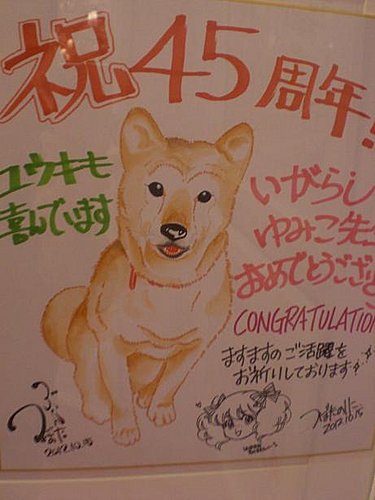 祝45周年!
ユウキも
喜んでいます
いがらし
ゆみこ先
おめでとうござ
CONGRATULATION
ますますのご活躍を
お祈りしております
2012.10.15
2012.10.15